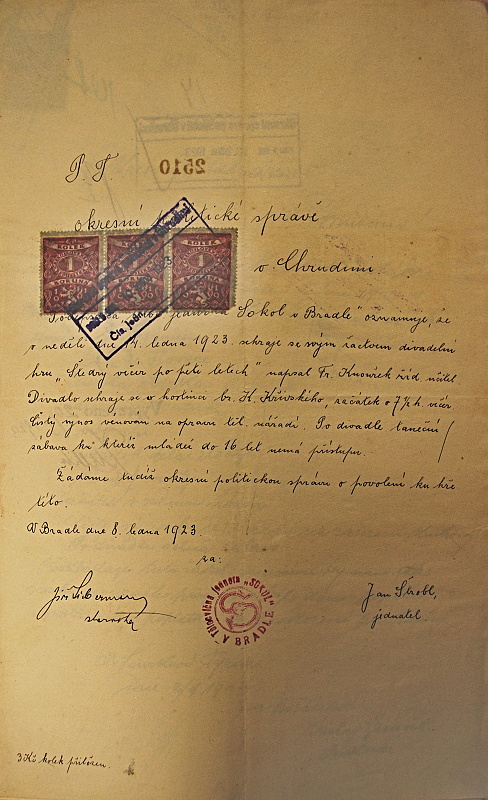 P. T.
2510
okresní politické správě
v Chrudimi.
KOLEK
1
KORUNA
KOLEK
KOLEK
1
KORUNA
Čís. jedn.
jednota „Sokol v Bradle" oznamuje, že
v neděli dne 14. ledna 1923. sehraje se svým žactvem divadelní
hru „Štědrý večer po pěti letech" napsal Fr. žid. učitel
Divadlo sehraje se v hostinci br. K. Křivského, začátek o 7½ h. večer
čistý výnos věnován na opravu těl. nářadí. Po divadle taneční
zábava ku kteréž mládež do 16 let nemá přístupu.
Žádáme tudíž okresní politickou správu o povolení ku hře
této.
V Bradle dne 8. ledna 1923.
za:
Jiří
starosta
Tělocvičná jednota „SOKOL" V BRADLE
Jan Štrobl,
jednatel.
3 Kč kolek přiložen.